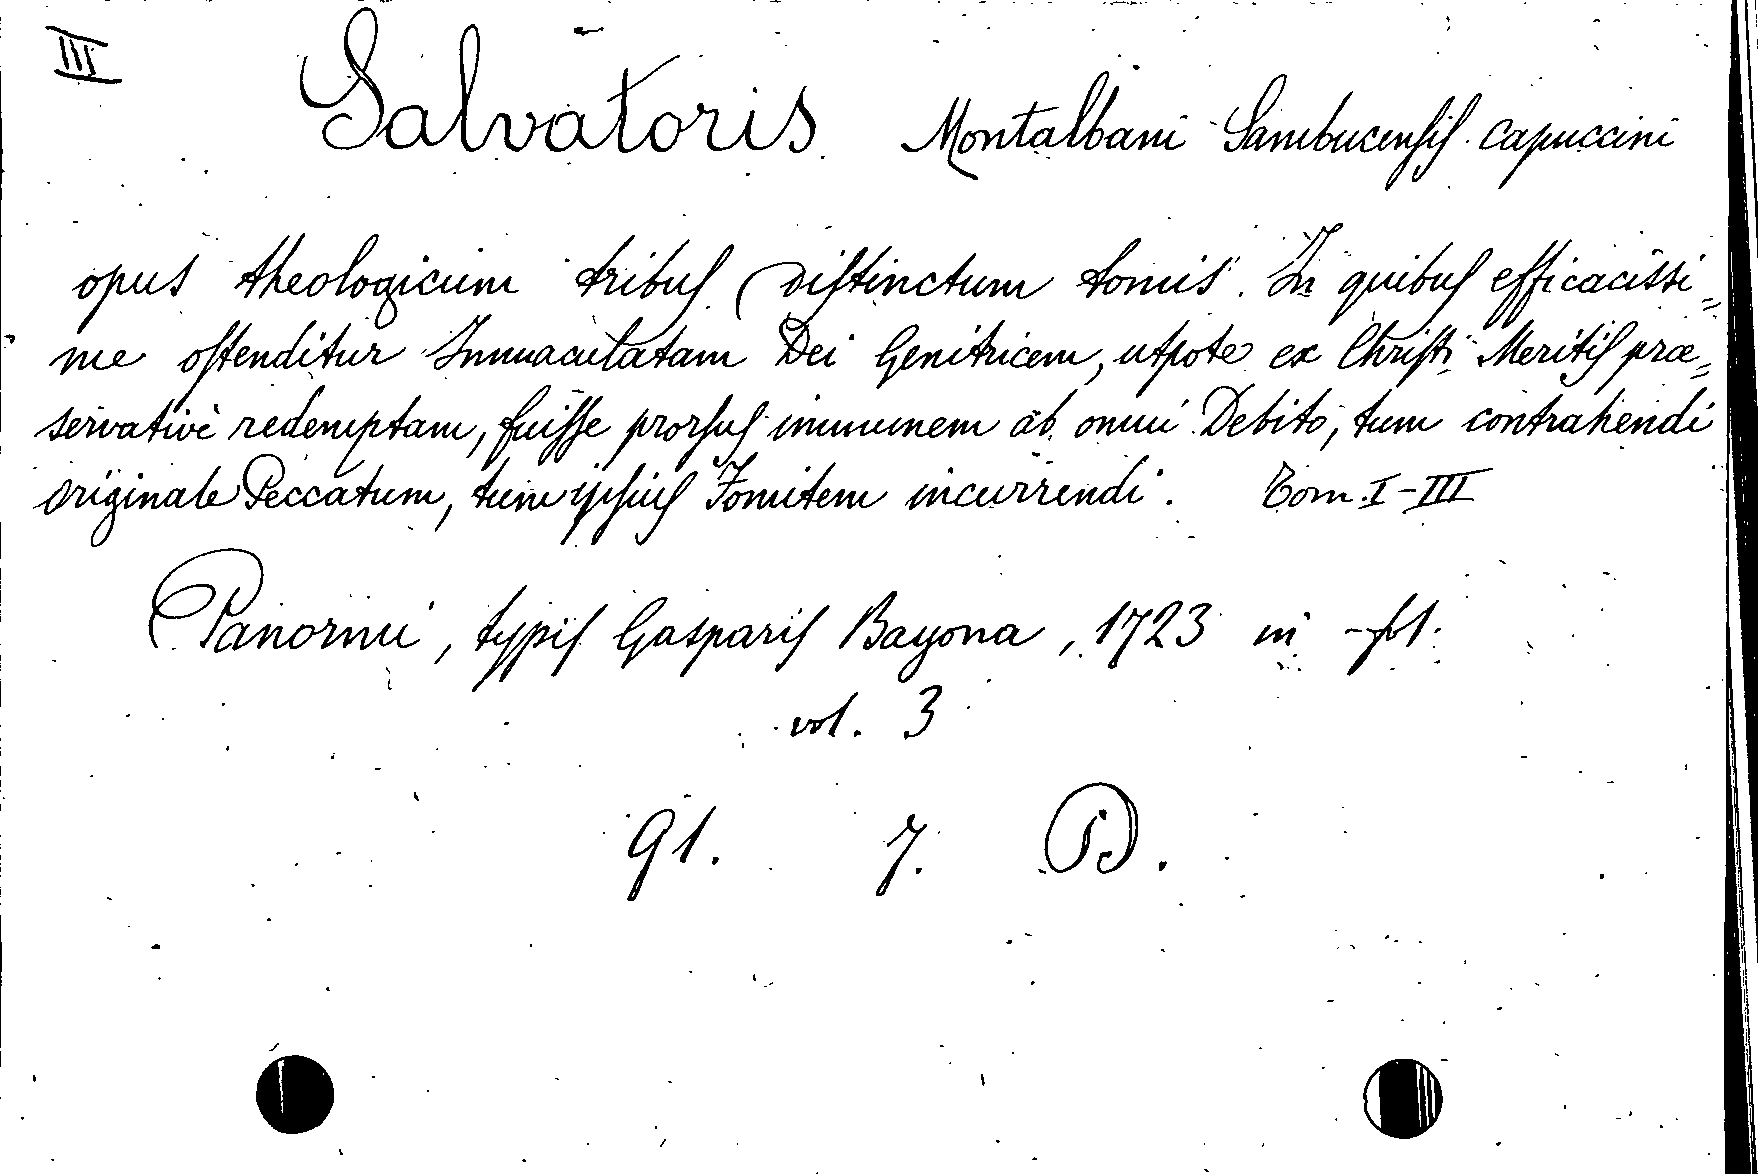 III
Salvatoris Montalbani Sambucensis capuccini
opus theologicum tribus distinctum tomis. In quibus efficacissi=
me ostenditur Immaculatam Dei Genitricem, utpote ex Christi Meritis præ=
servativè redemptam, fuisse prorsus immunem ab omni Debito, tum contrahendi
originale Peccatum, tum ipsius Fomitem incurrendi. Tom. I-III
Panormi, typis Gasparis Bayona, 1723 in -fol.
vol. 3
91. 7. D.